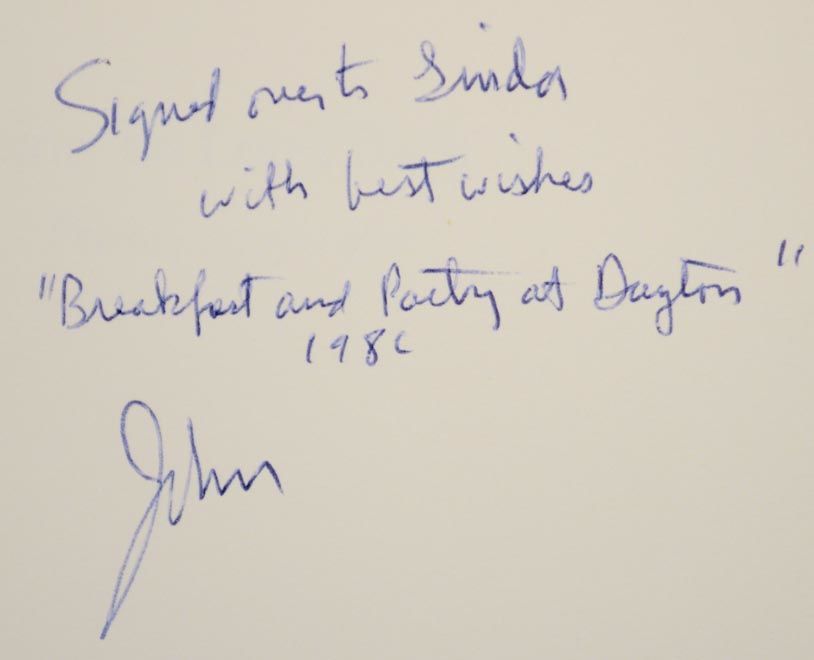 Signed over to Linda
with best wishes
"Breakfast and Poetry at Dayton"
1986
John